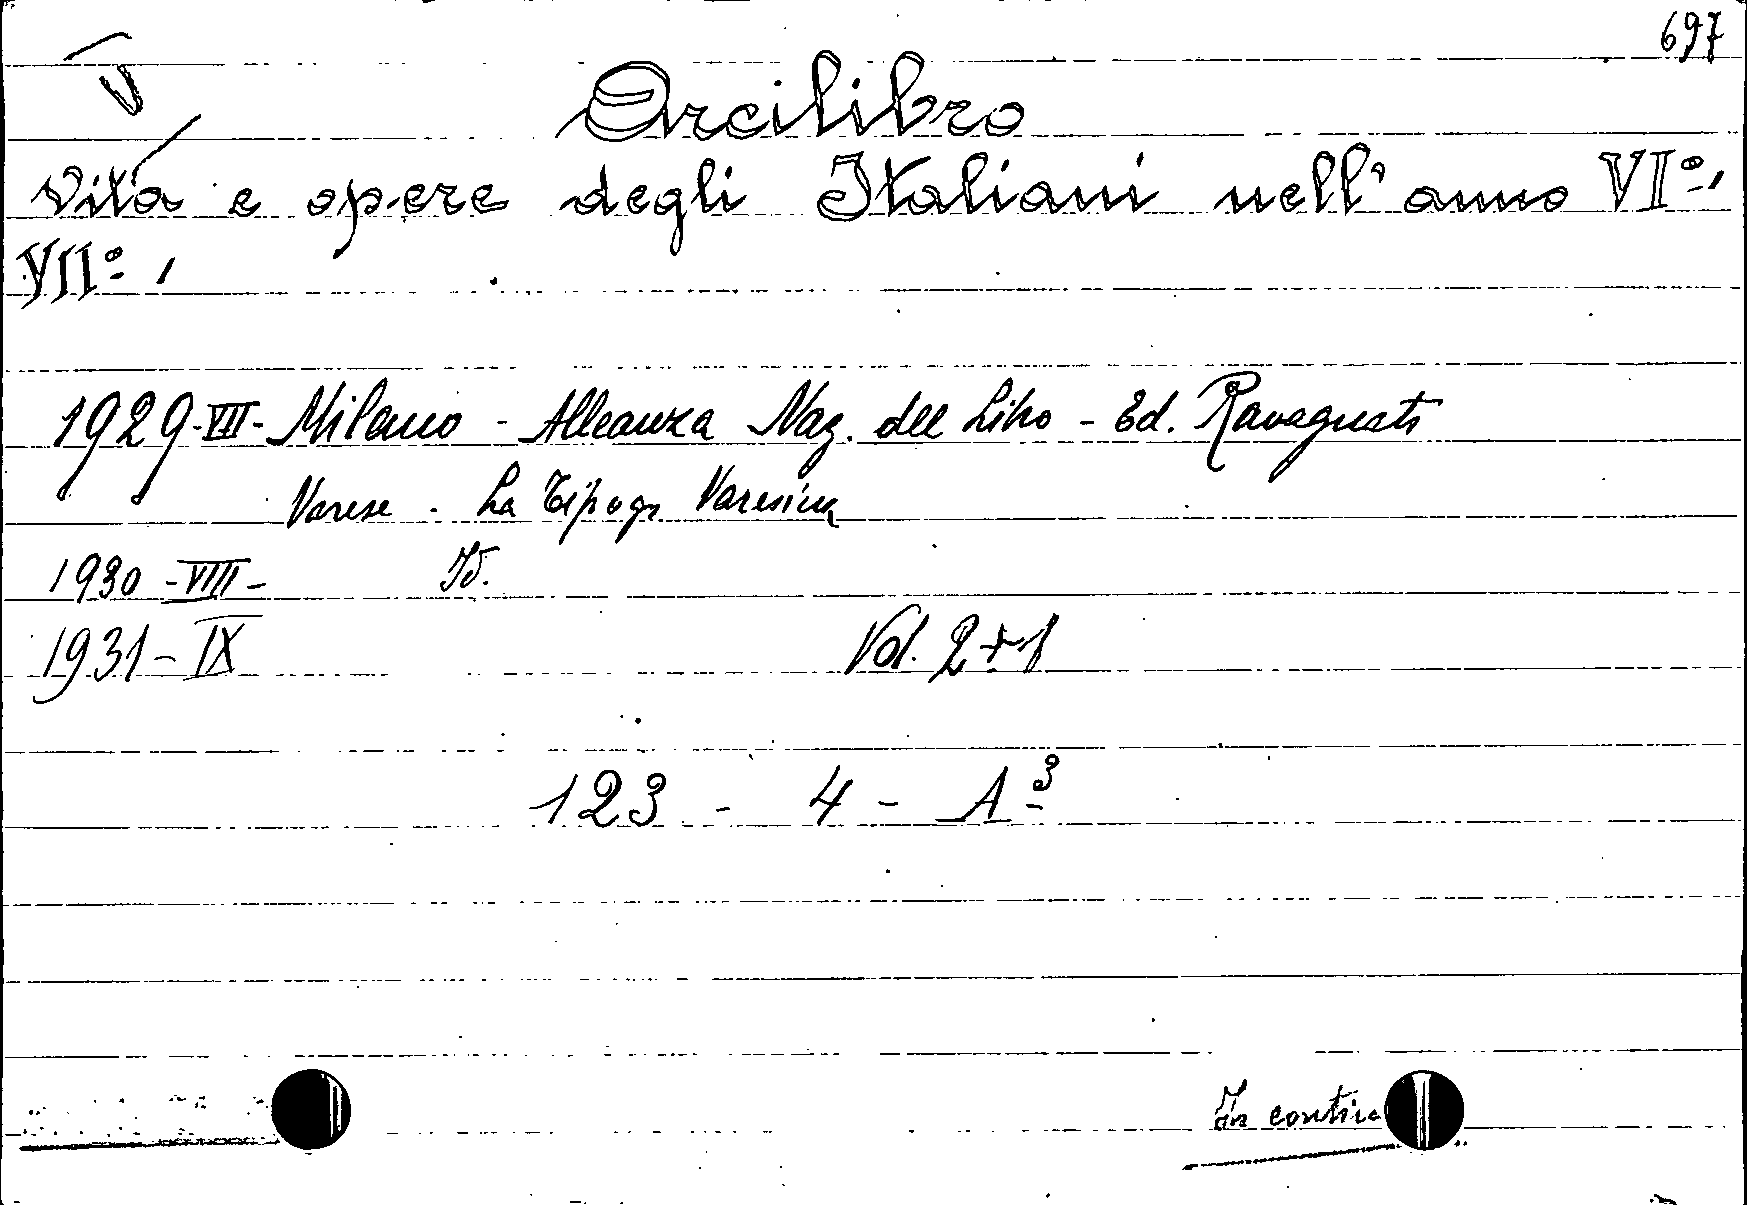 697
V
Arcilibro
Vita e opere degli Italiani nell' anno VI°,
VII°,
1929-VII- Milano - Alleanza Naz. del Libro - Ed. Ravagnati
Varese - La Tipogr Varesina
1930 -VIII- Id.
1931 - IX Vol. 2+1
123 - 4 - A3
In contin